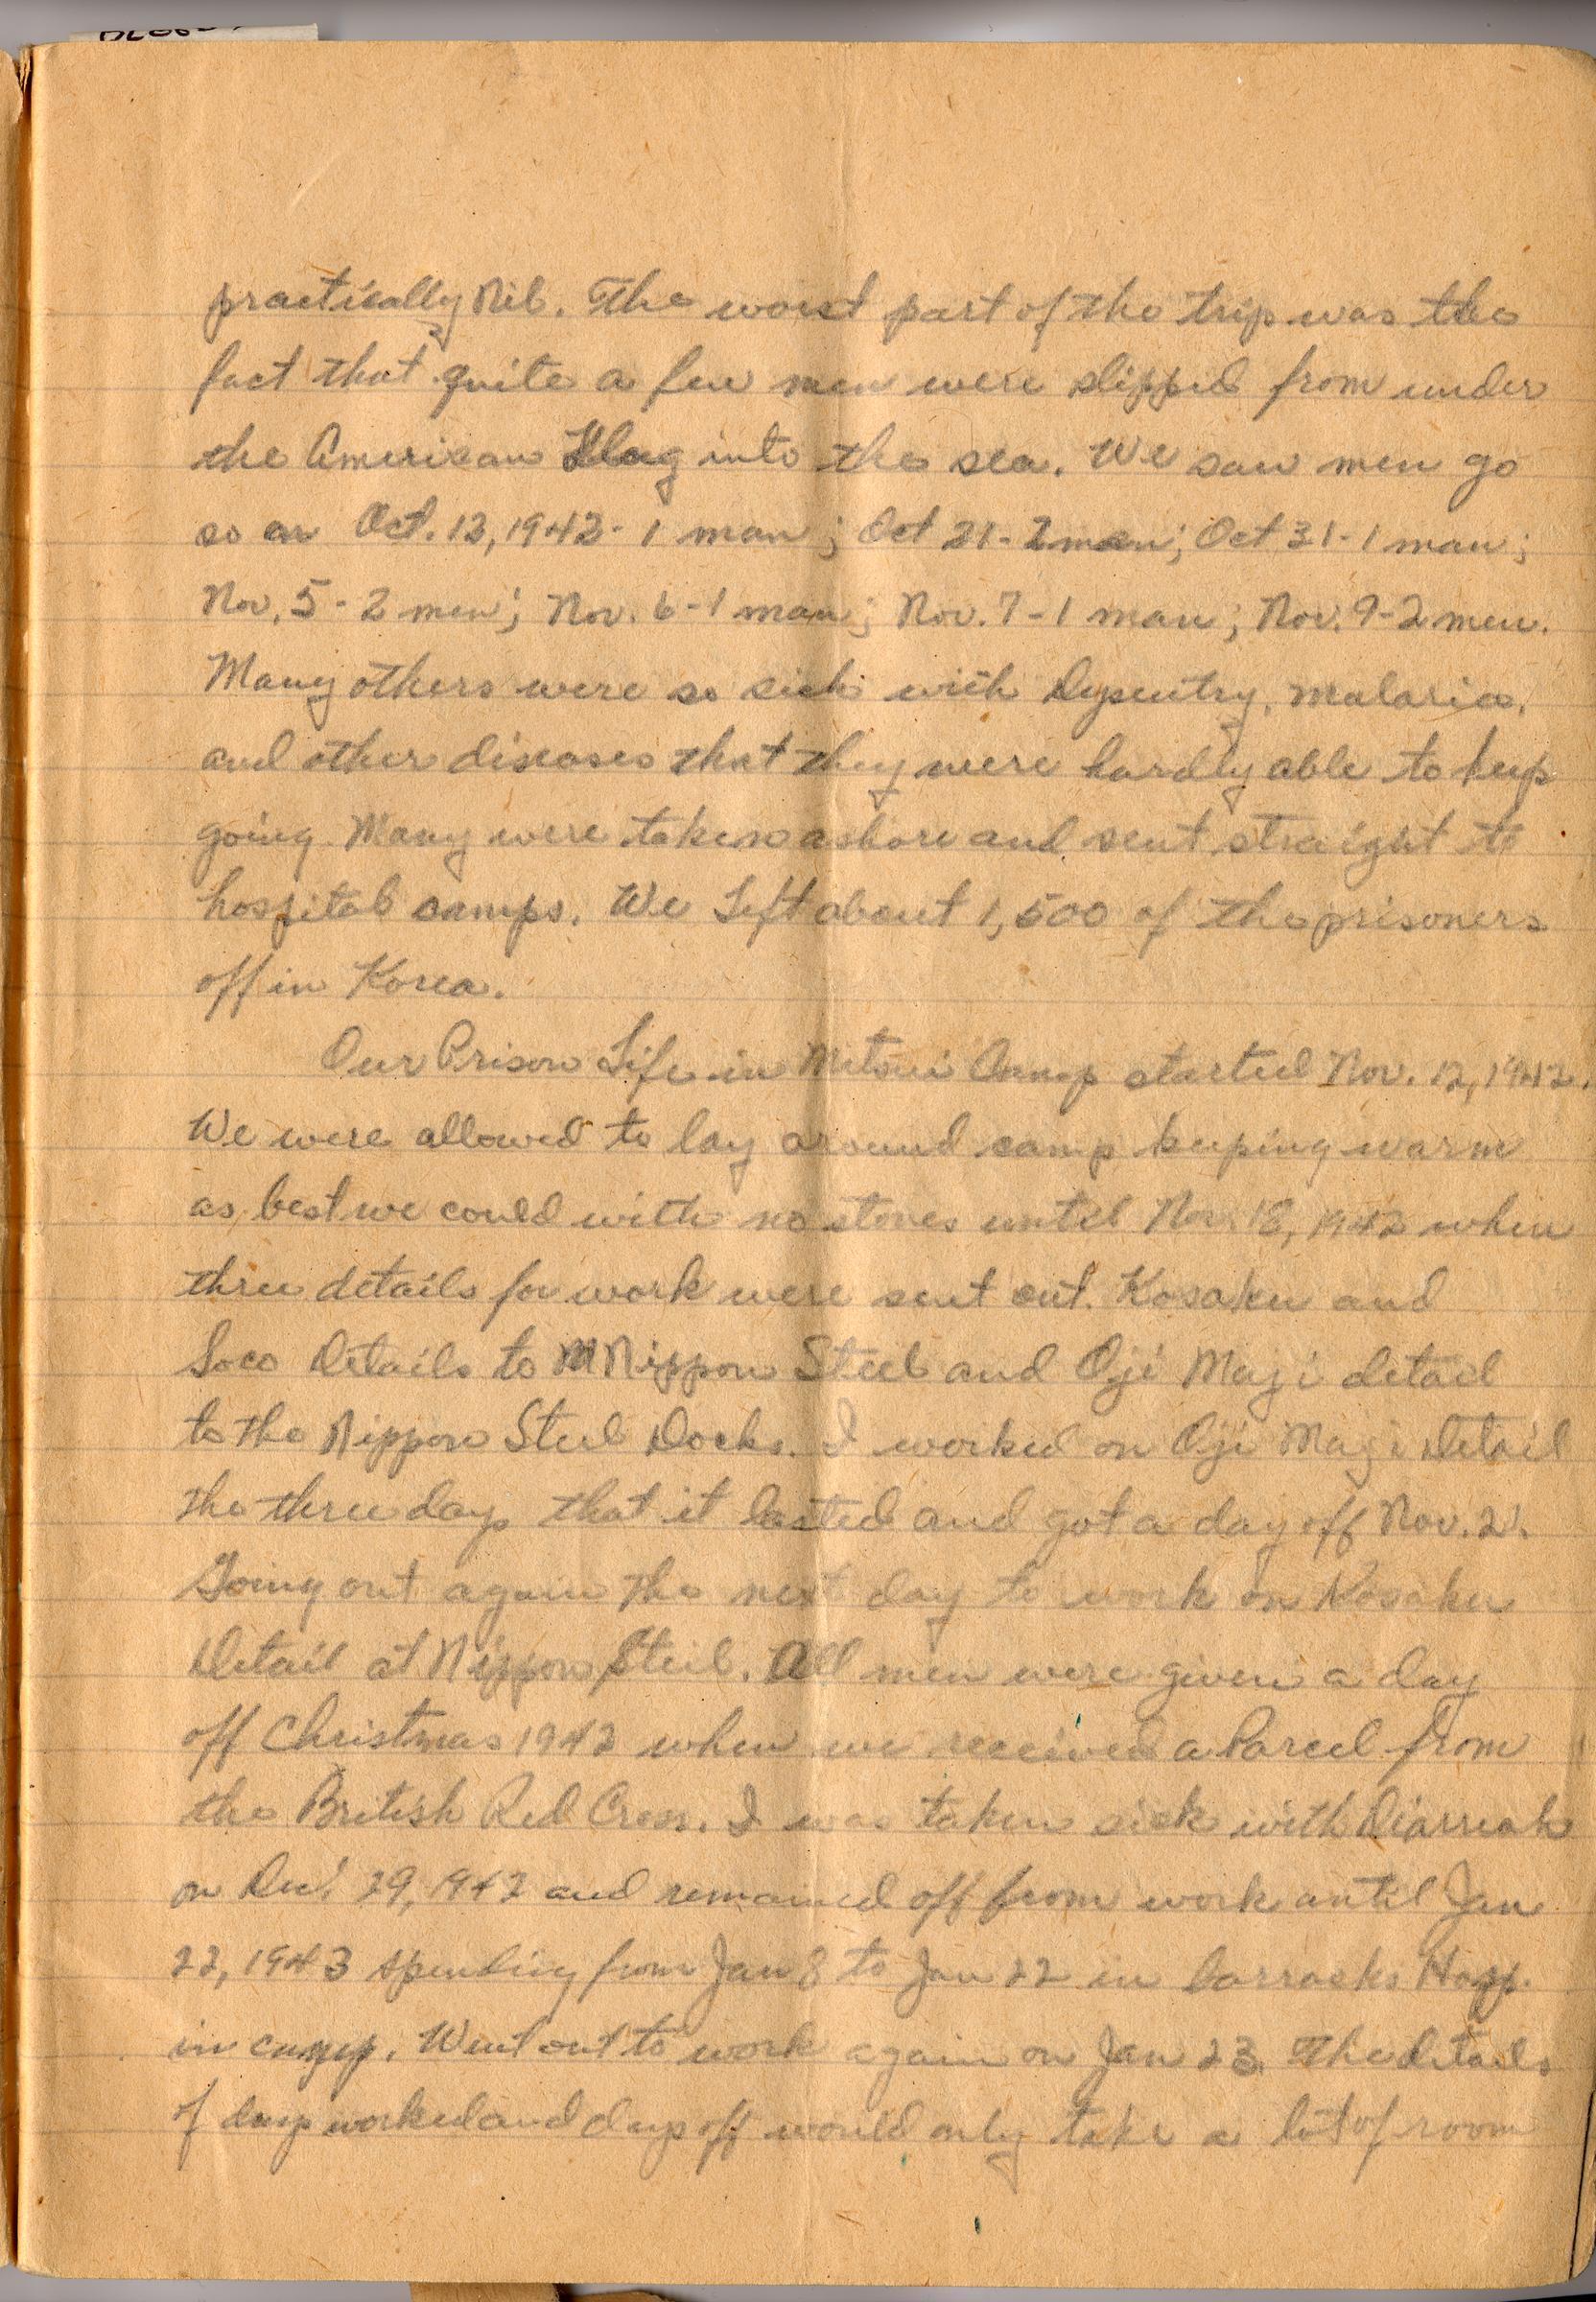 practically Nil. The worst part of the trip was the
fact that quite a few men were slipped from under
the American Flag into the sea. We saw men go
so on Oct. 12, 1942 - 1 man; Oct 21 - 2 men; Oct 31 - 1 man;
Nov. 5 - 2 men; Nov. 6 - 1 man; Nov. 7 - 1 man; Nov. 9 - 2 men.
Many others were so sick with Dysentry, malaria,
and other diseases that they were hardly able to keep
going. Many were taken ashore and sent straight to
hospital camps. We Left about 1,500 of the prisoners
off in Korea.
Our Prison Life in Mitsui Camp started Nov. 12, 1942.
We were allowed to lay around camp keeping warm
as best we could with no stoves until Nov. 18, 1942 when
three details for work were sent out. Kosaku and
Soco Details to Nippon Steel and Oji Magi detail
to the Nippon Steel Docks. I worked on Oji Magi Detail
the three days that it lasted and got a day off Nov. 21.
Going out again the next day to work on Kosaku
Detail at Nippon Steel. All men were given a day
off Christmas 1942 when we received a Parcel from
the British Red Cross. I was taken sick with Diarreah
on Dec. 29, 1942 and remained off from work until Jan
22, 1943 spending from Jan 8 to Jan 22 in barracks Hosp.
in camp. Went out to work again on Jan 23. The details
of days worked and days off would only take a lot of room